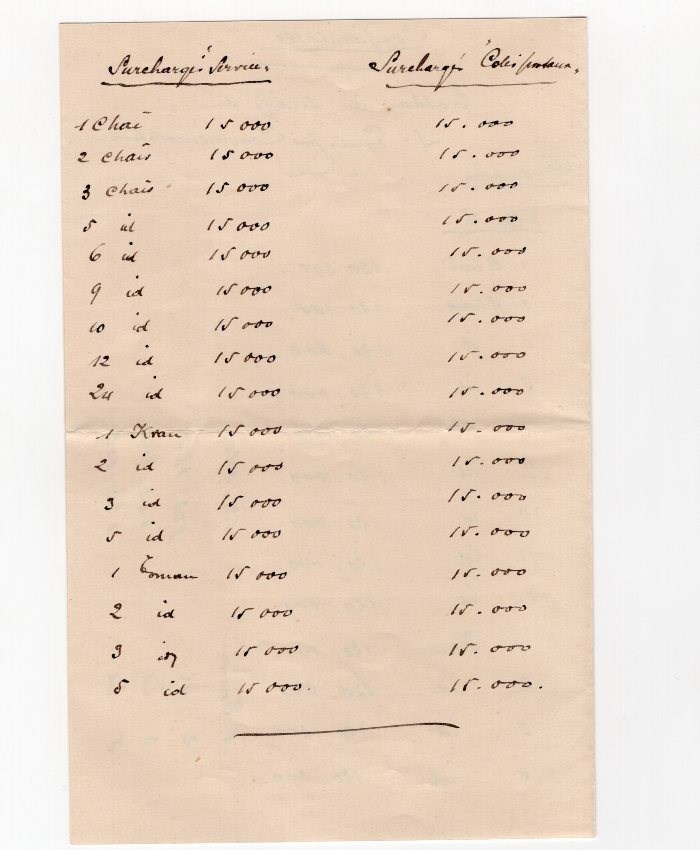 Surchargés Service. Surchargés Colis postaux.
1 Chaï 15 000 15. 000
2 Chaïs 15 000 15. 000
3 Chaïs 15 000 15. 000
5 id 15 000 15. 000
6 id 15 000 15. 000
9 id 15 000 15. 000
10 id 15 000 15. 000
12 id 15 000 15. 000
24 id 15 000 15. 000
1 Kran 15 000 15. 000
2 id 15 000 15. 000
3 id 15 000 15. 000
5 id 15 000 15. 000
1 Toman 15 000 15. 000
2 id 15 000 15. 000
3 id 15 000 15. 000
5 id 15 000. 15. 000.